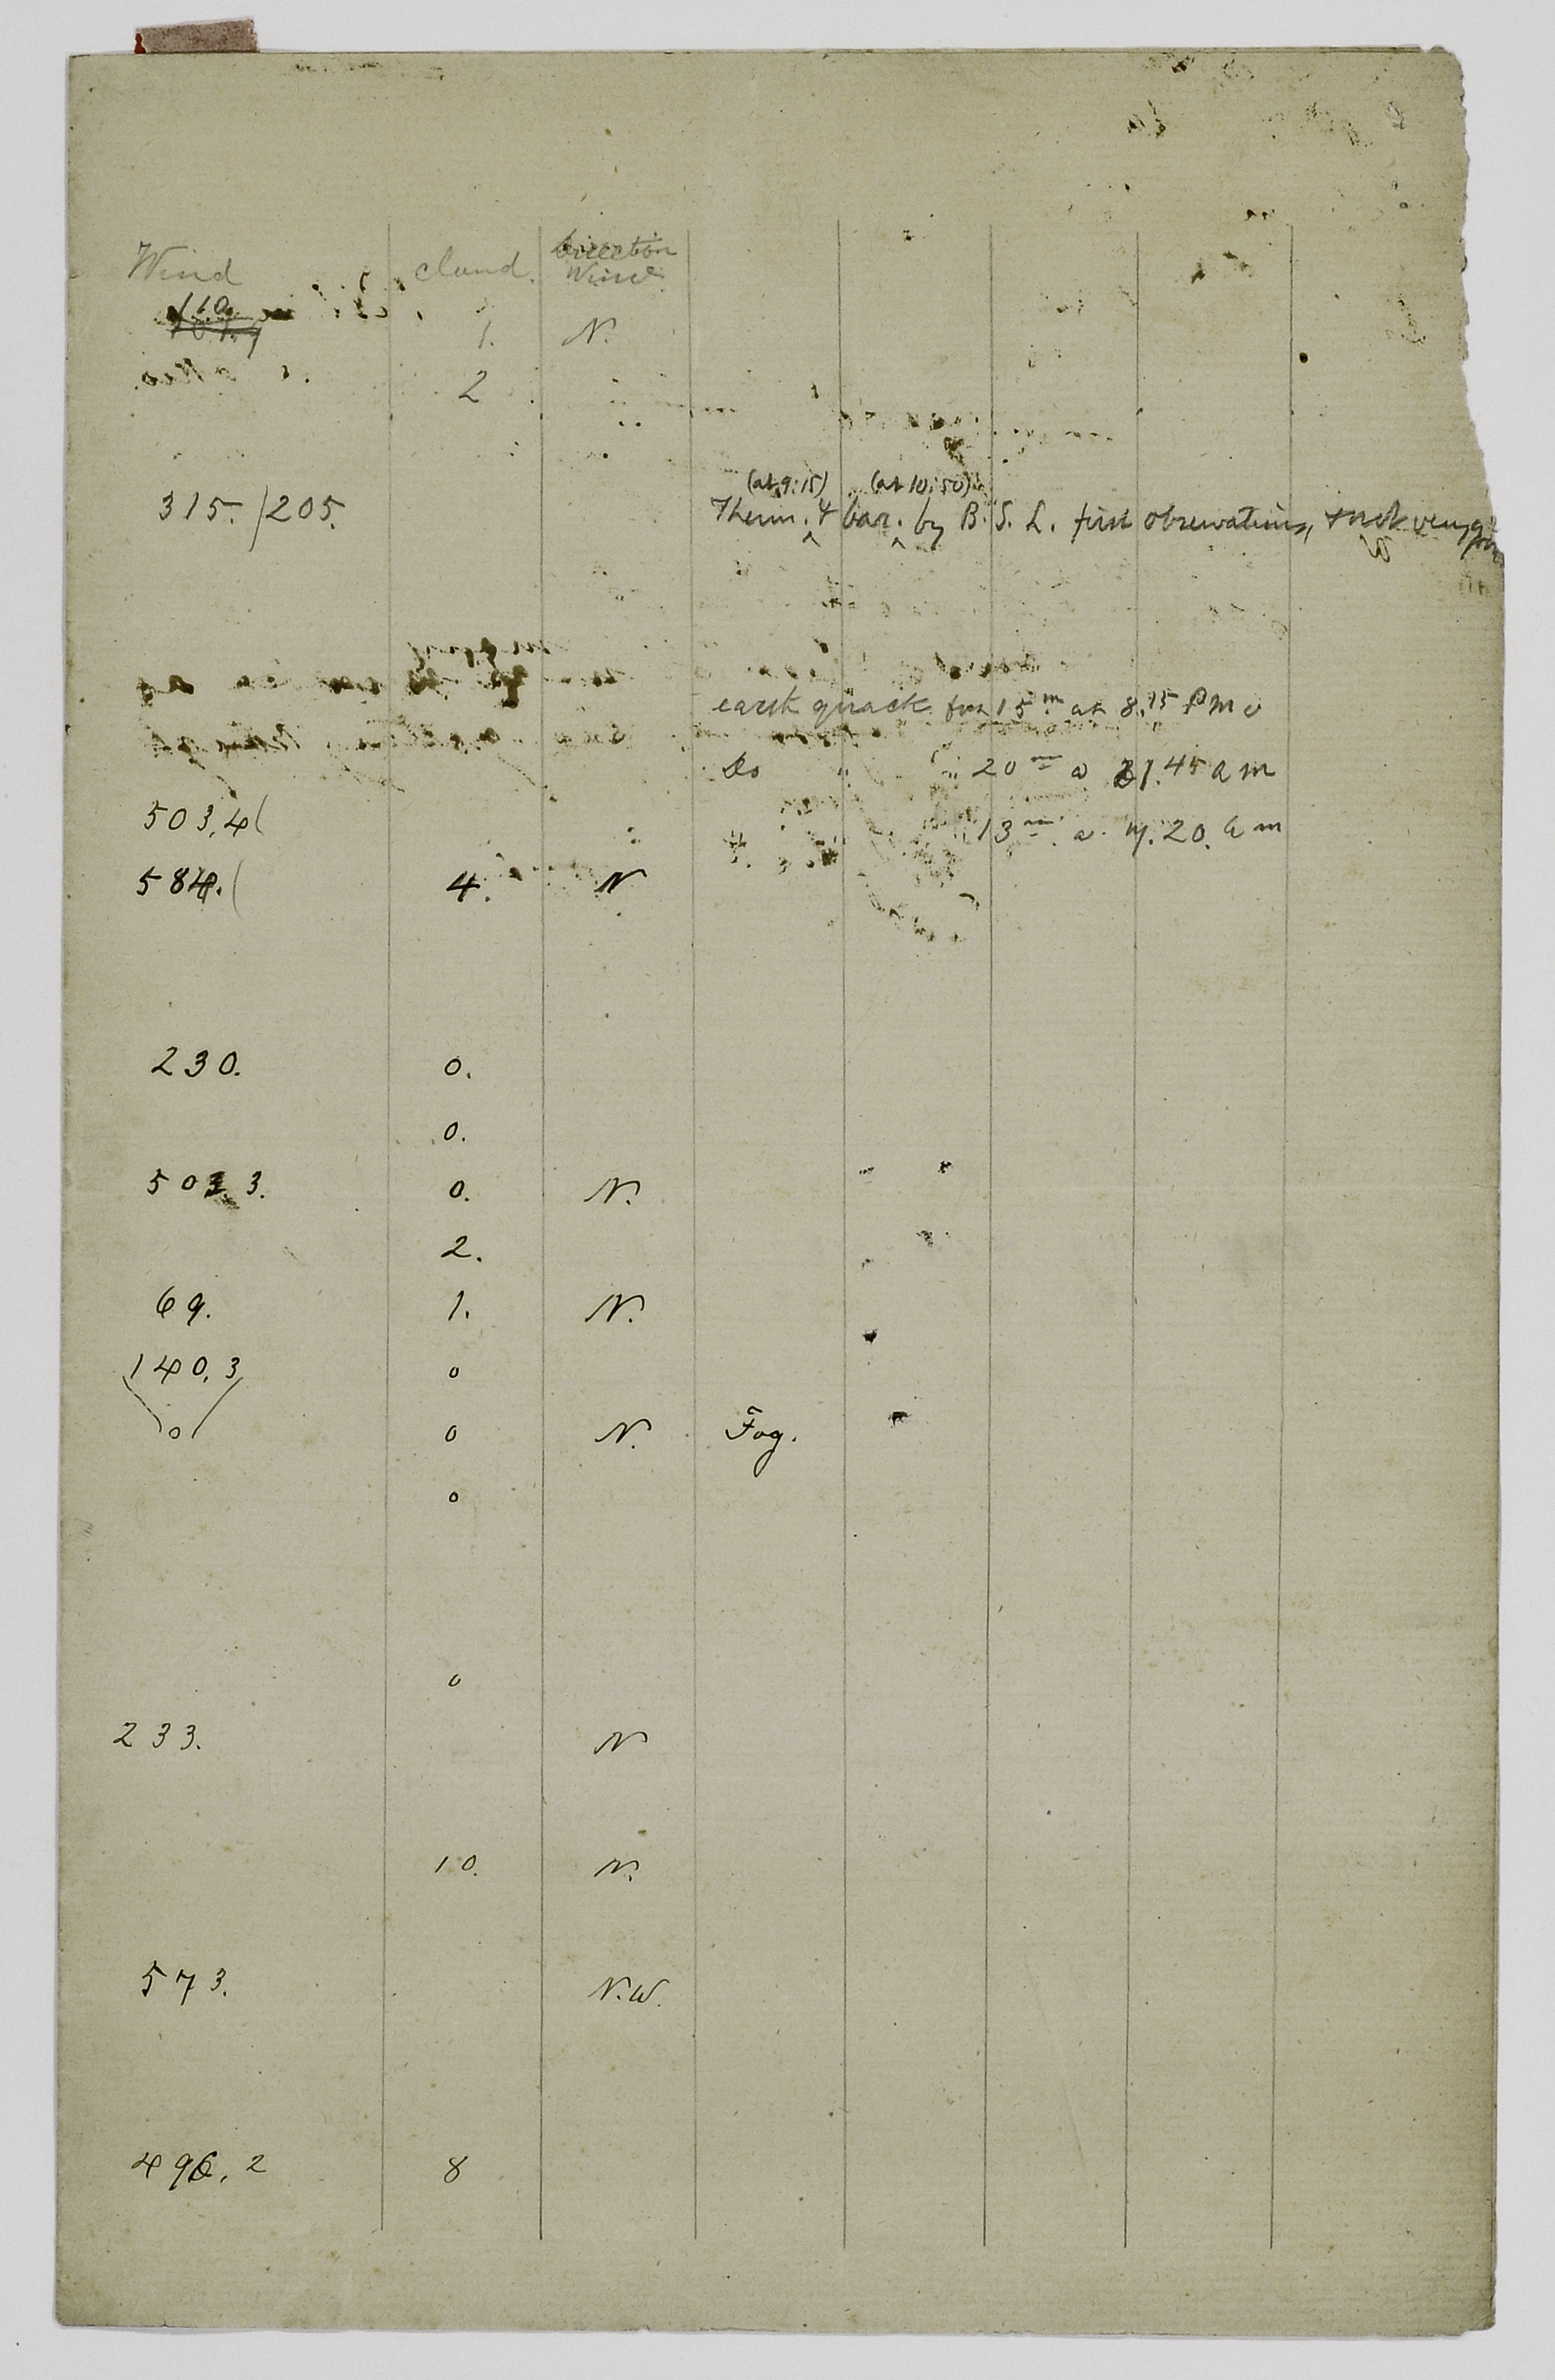 Wind cloud. Direction Wind
110.
1. N.
2
(at 9:15) (at 10:50)
315. / 205. Therm. & bar. by B. S. L. first observations, not very
earth quack for 15 m at 8.15 P m
Do " " 20 m a 1.45 a m
503.4
" 13 m a 4.20. a m
584. 4. N
230. 0.
0.
503.3. 0. N.
2.
69. 1. N.
140.3 0
0 0 N. Fog.
0
0
233. N
10. N.
573. N.W.
496.2 8